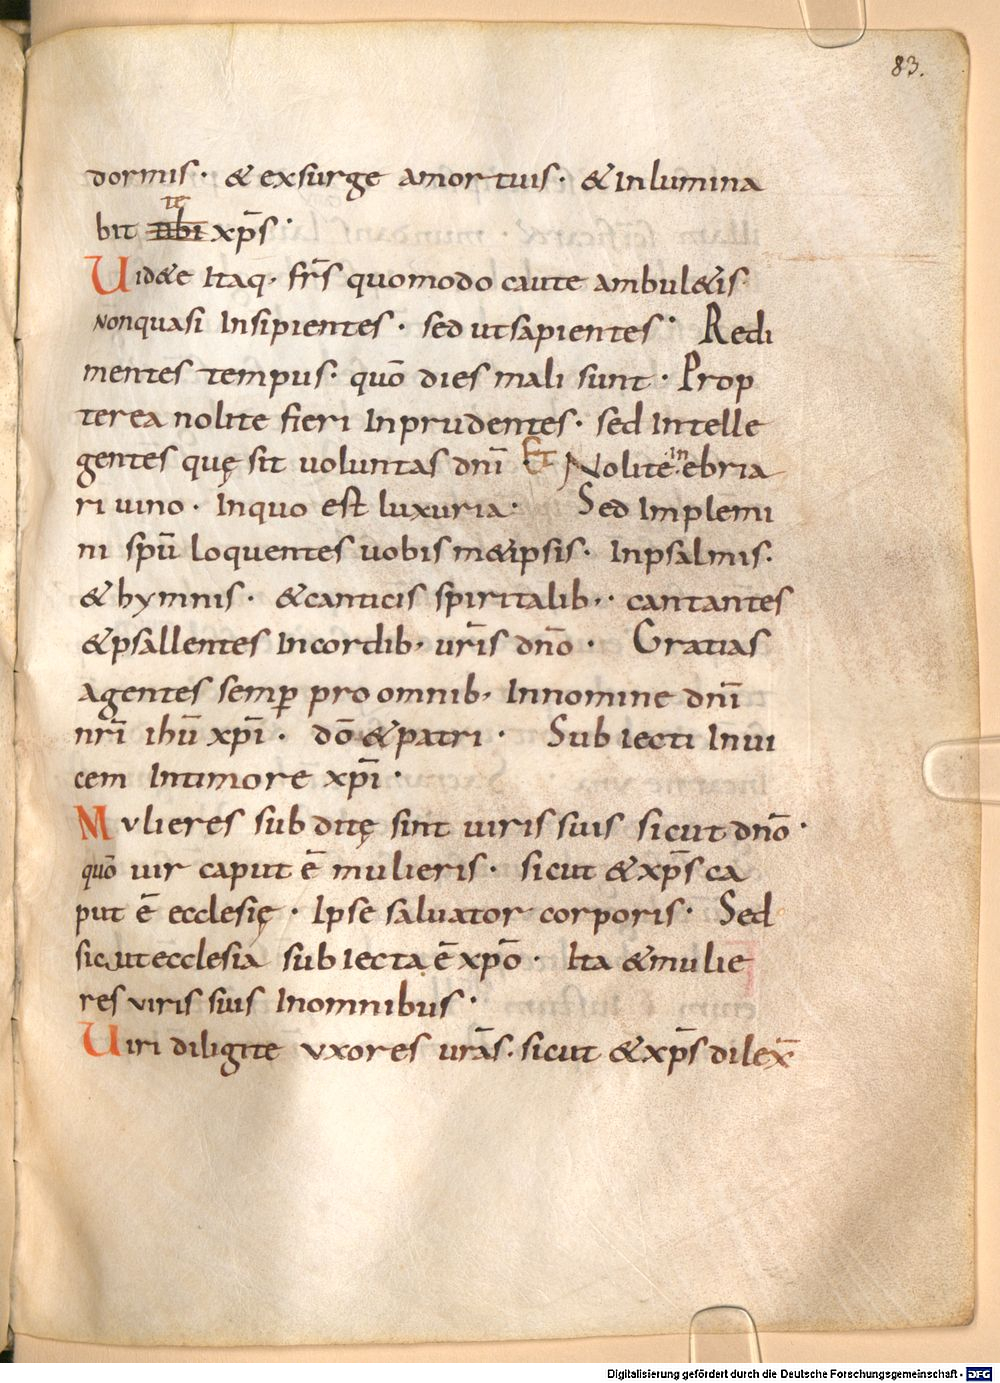 83.
dormis · & exsurge amortuis · & Inlumina
te
bit tibi xp̄s ·
Uid&e Itaq · fr̄s quomodo caute ambul&is ·
Nonquasi Insipientes · sed utsapientes · Redi
mentes tempus · quō dies mali sunt · Prop
terea nolite fieri Inprudentes · sed Intelle
gentes quę sit uoluntas dnī · Et Nolite In ebria
ri uino · Inquo est luxuria · Sed Implemi
ni spū loquentes uobis m&ipsis · Inpsalmis ·
& hymnis · &canticis spiritalib, · cantantes
&psallentes Incordib, ur̄is dnō · Gratias
agentes semp̱ pro omnib, Innomine dnī
nrī ihū xpī · dō &patri · Sub iecti Inui
cem Intimore xpī ·
Mulieres sub ditę sint uiris suis sicut dnō ·
quō uir caput ē mulieris · sicut &xp̄s ca
put ē ecclesię · Ipse saluator corporis · Sed
sicut ecclesia sub iecta ē xpō · Ita &mulie
res uiris suis Inomnibus ·
Uiri diligite uxores urās · sicut &xp̄s dilex̄
Digitalisierung gefördert durch die Deutsche Forschungsgemeinschaft - DFG